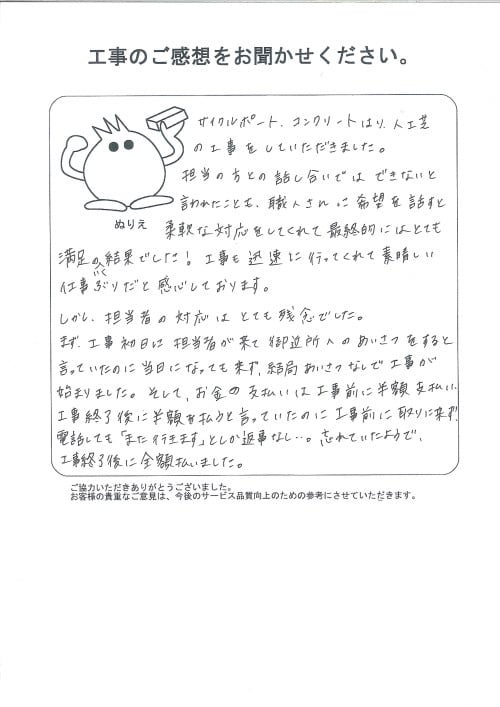 工事のご感想をお聞かせください。
サイクルポート、コンクリートはり、人工芝
の工事をしていただきました。
担当の方との話し合いでは できないと
言われたことも、職人さんに希望を話すと
ぬりえ
柔軟な対応をしてくれて最終的にはとても
満足のいく結果でした！工事も迅速に行ってくれて素晴しい
仕事ぶりだと感心しております。
しかし、担当者の対応はとても残念でした。
まず、工事初日に担当者が来て御近所へのあいさつをすると
言っていたのに当日になっても来ず、結局あいさつなしで工事が
始まりました。そして、お金の支払いは工事前に半額支払い、
工事終了後に半額を払うと言っていたのに工事前に取りに来ず、
電話しても「また行きます」としか返事なし…。忘れていたようで、
工事終了後に全額払いました。
ご協力いただきありがとうございました。
お客様の貴重なご意見は、今後のサービス品質向上のための参考にさせていただきます。